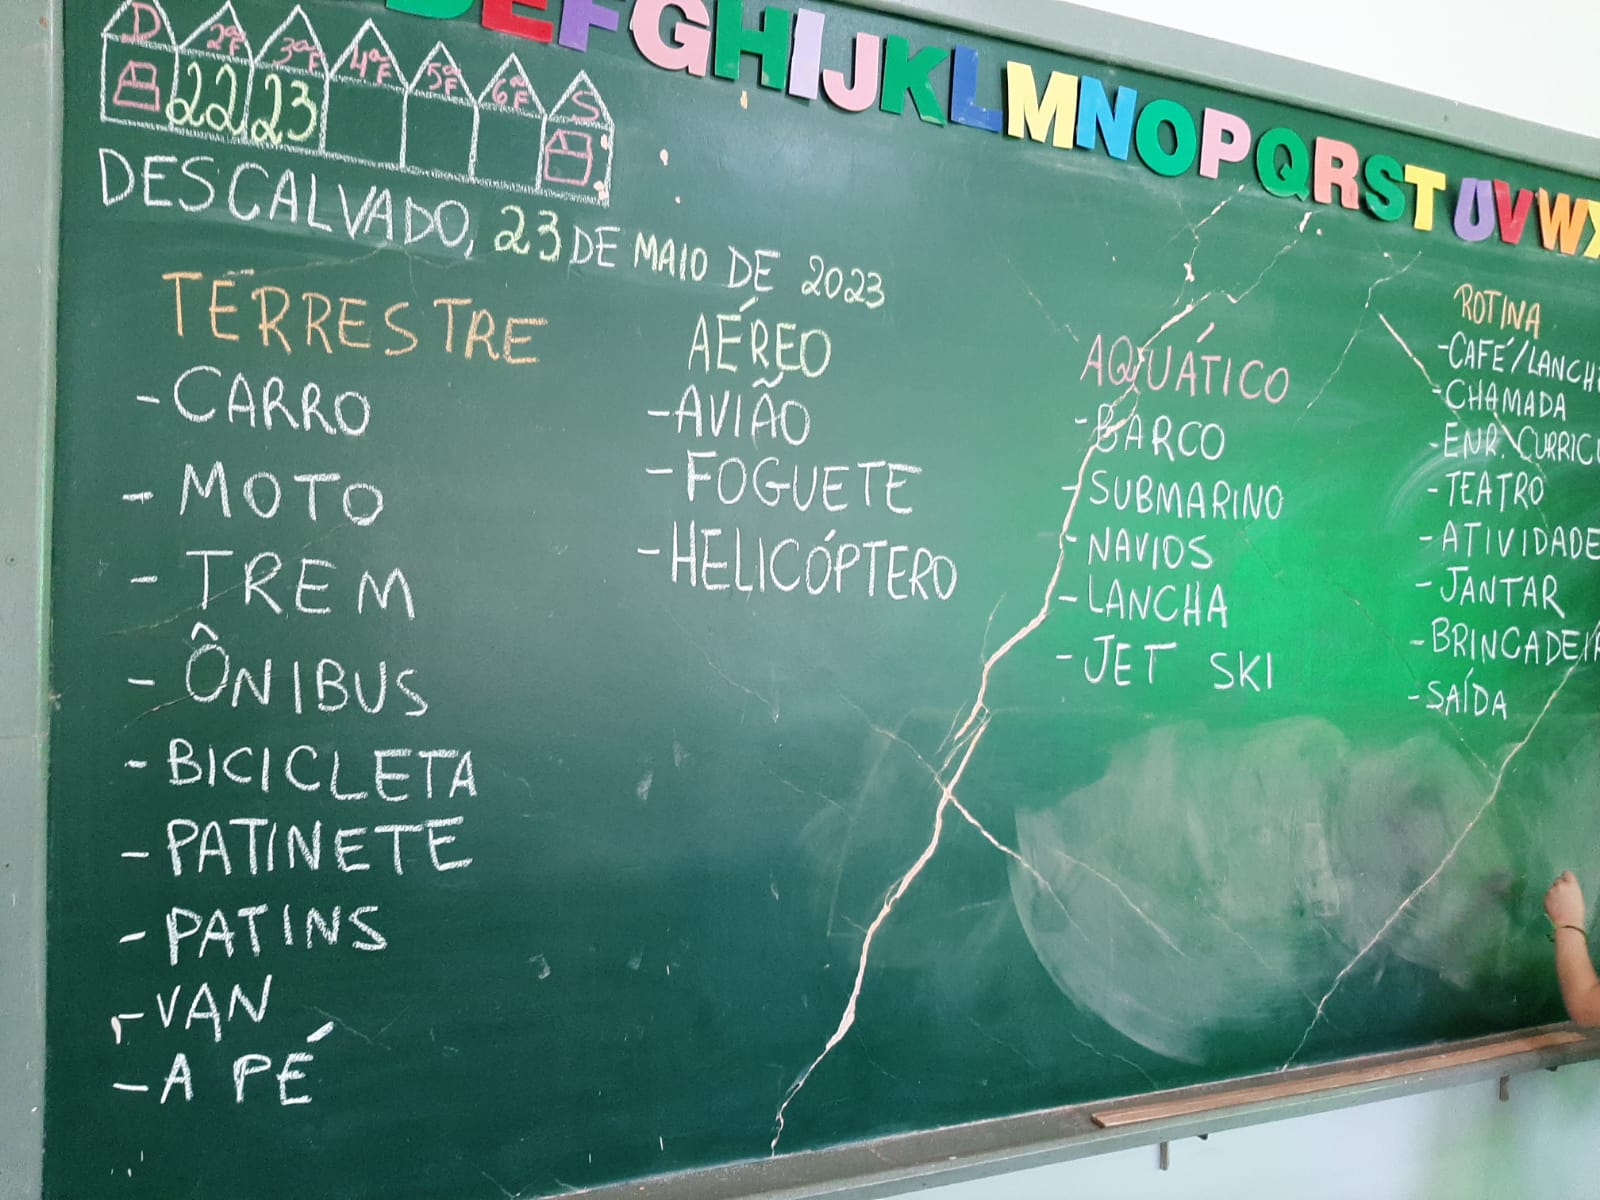 D 2ªF 3ªF 4ªF 5ªF 6ªF S
22 23
DEFGHIJKLMNOPQRSTUVWX
DESCALVADO, 23 DE MAIO DE 2023
TERRESTRE
-CARRO
- MOTO
- TREM
- ÔNIBUS
- BICICLETA
- PATINETE
- PATINS
- VAN
- A PÉ
AÉREO
-AVIÃO
- FOGUETE
-HELICÓPTERO
AQUÁTICO
- BARCO
- SUBMARINO
- NAVIOS
- LANCHA
- JET SKI
ROTINA
-CAFÉ/LANCHE
-CHAMADA
-ENR. CURRICU
-TEATRO
-ATIVIDADE
-JANTAR
-BRINCADEIR
-SAÍDA